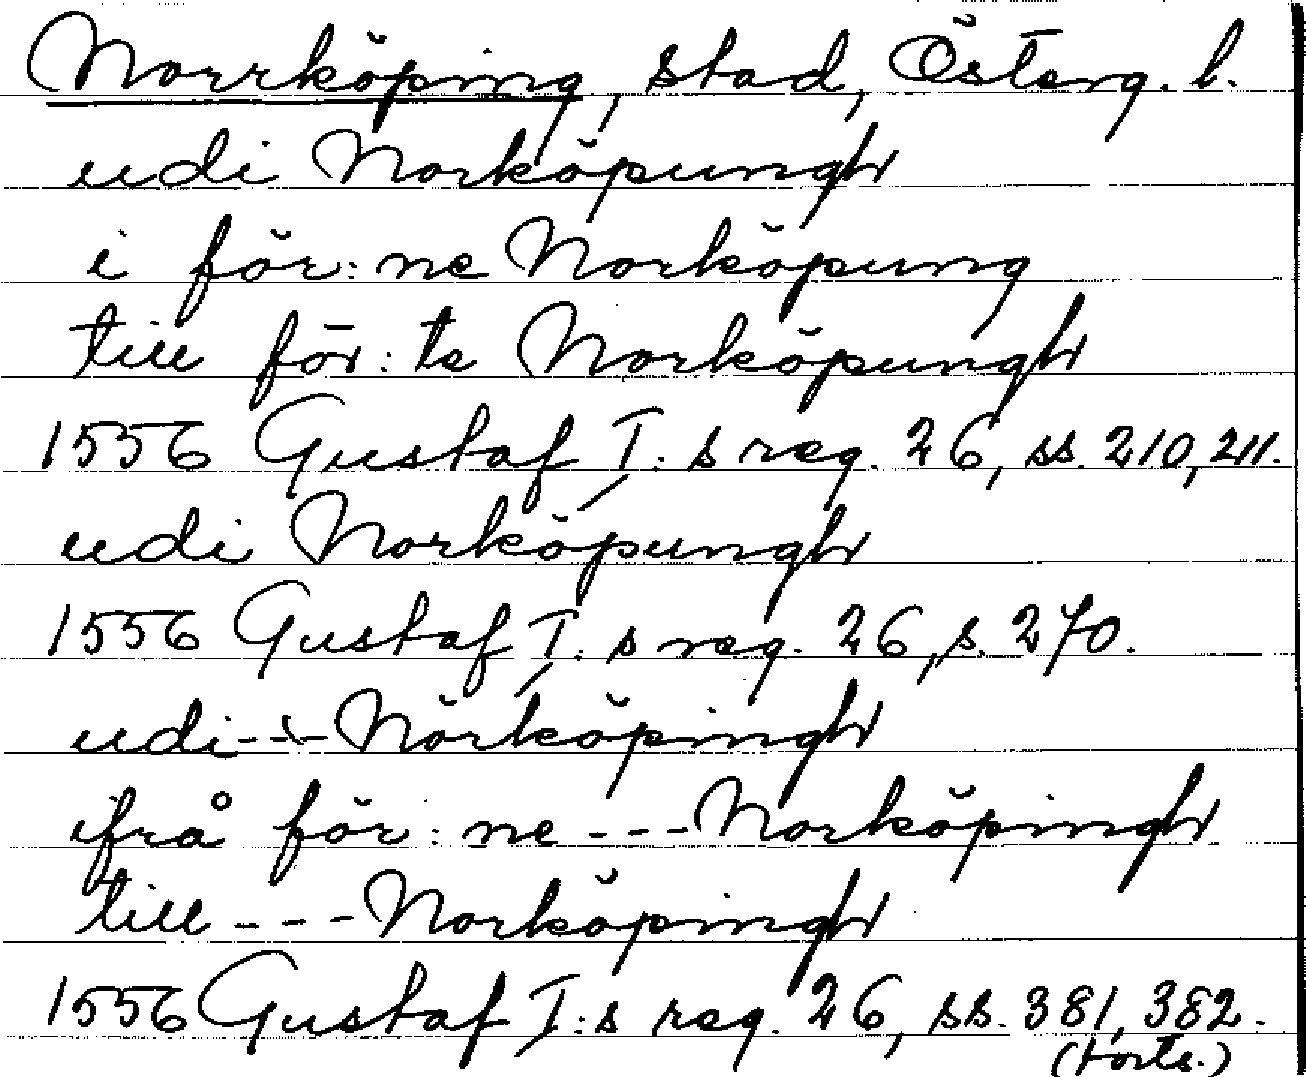 Norrköping, stad, Österg. l.
udi Norköpungh
i för:ne Norköpung
till för:te Norköpungh
1556 Gustaf I:s reg. 26, ss. 210, 211.
udi Norköpungh
1556 Gustaf I:s reg. 26, s. 270.
udi --- Nörköpingh
ifrå för:ne --- Norköpingh
till --- Norköpingh
1556 Gustaf I:s reg. 26, ss. 381, 382.
(forts.)